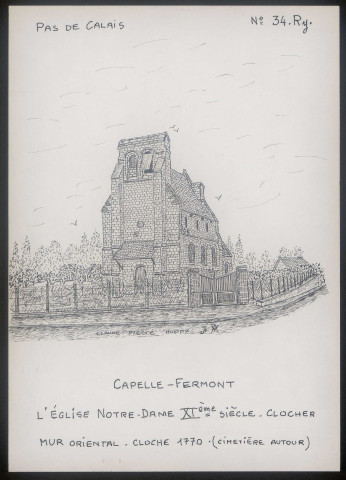 PAS DE CALAIS
N° 34.Ry.
CLAUDE PIETTE
CAPELLE-FERMONT
L'ÉGLISE NOTRE-DAME XIème SIÈCLE. CLOCHER
MUR ORIENTAL. CLOCHE 1770.(CIMETIÈRE AUTOUR)